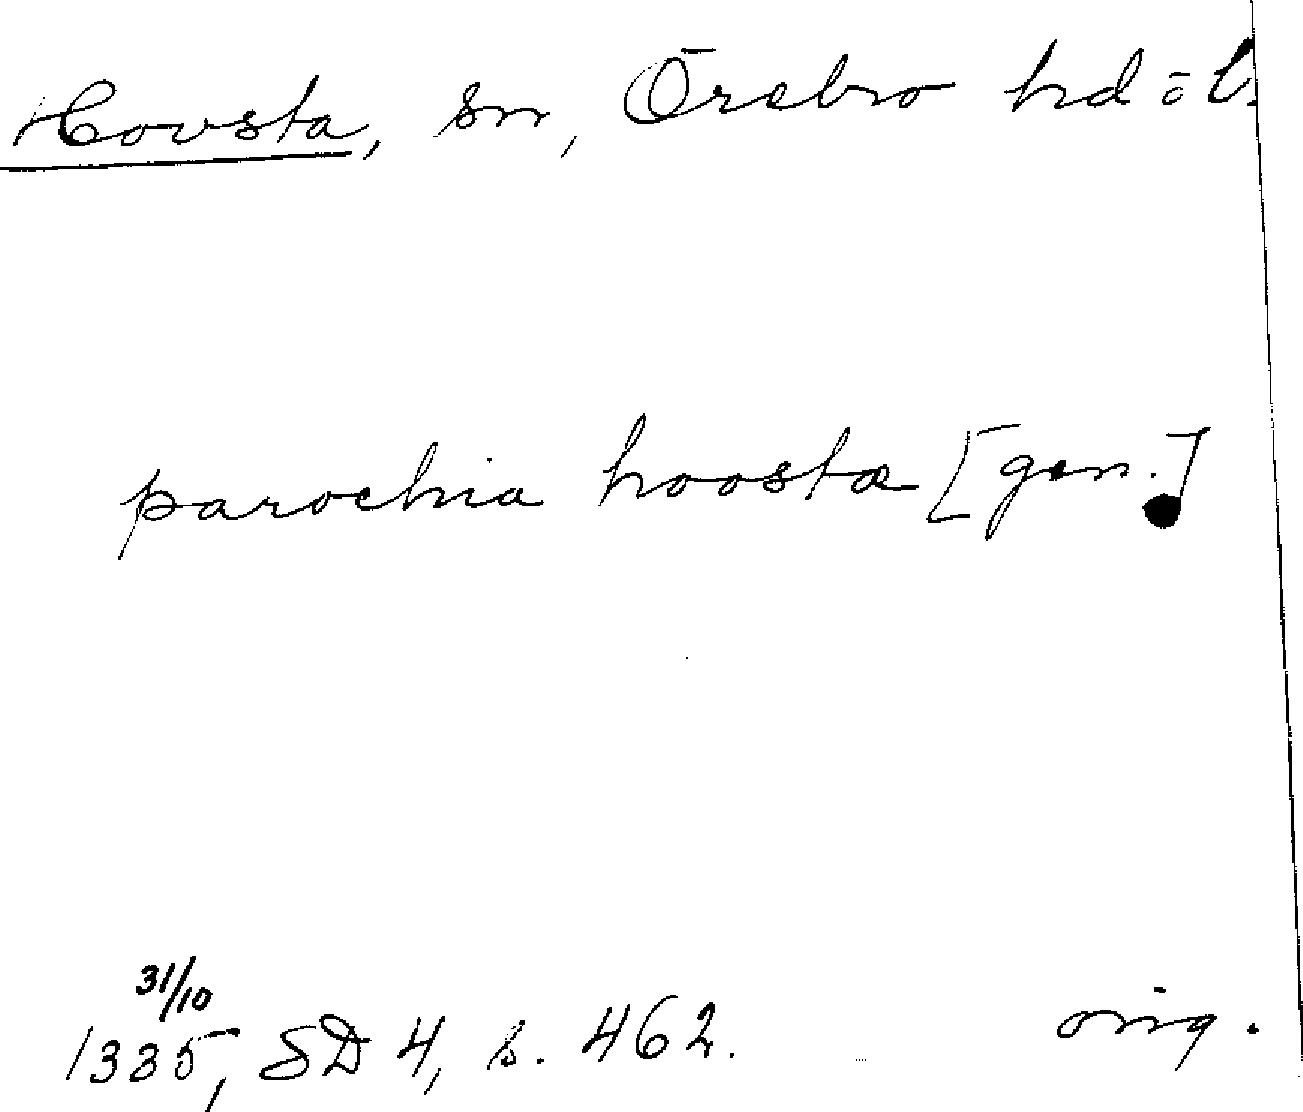 Hovsta, sn, Örebro hd ö b.
parochia hoosta [gen.]
31/10
1335, SD 4, s. 462. orig.